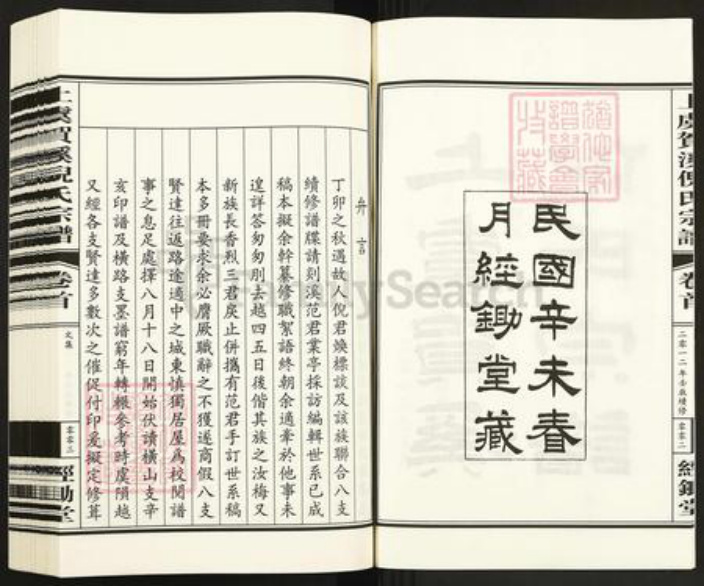 民國辛未春
月經鋤堂藏
上虞賀溪倪氏宗譜
卷首
二零一二年壬辰續修
零零二
經鋤堂
弁言
丁卯之秋遇故人倪君煥標談及該族聯合八支
續修譜牒請剡溪范君業亭採訪編輯世系已成
稿本擬余幹纂修職絮語終朝余適牽於他事未
遑詳答匆匆別去越四五日後偕其族之汝梅又
新族長香烈三君戾止併攜有范君手訂世系稿
本多冊要求余必膺厥職辭之不獲遂商假八支
賢達往返路途適中之城東慎獨居屋為校閱譜
事之息足處擇八月十八日開始伏讀橫山支辛
亥印譜及橫路支墨譜窮年轉輾參考時虞隕越
又經各支賢達多數次之催促付印爰擬定修葺
上虞賀溪倪氏宗譜
卷首
文集
零零三
經鋤堂
FamilySearch